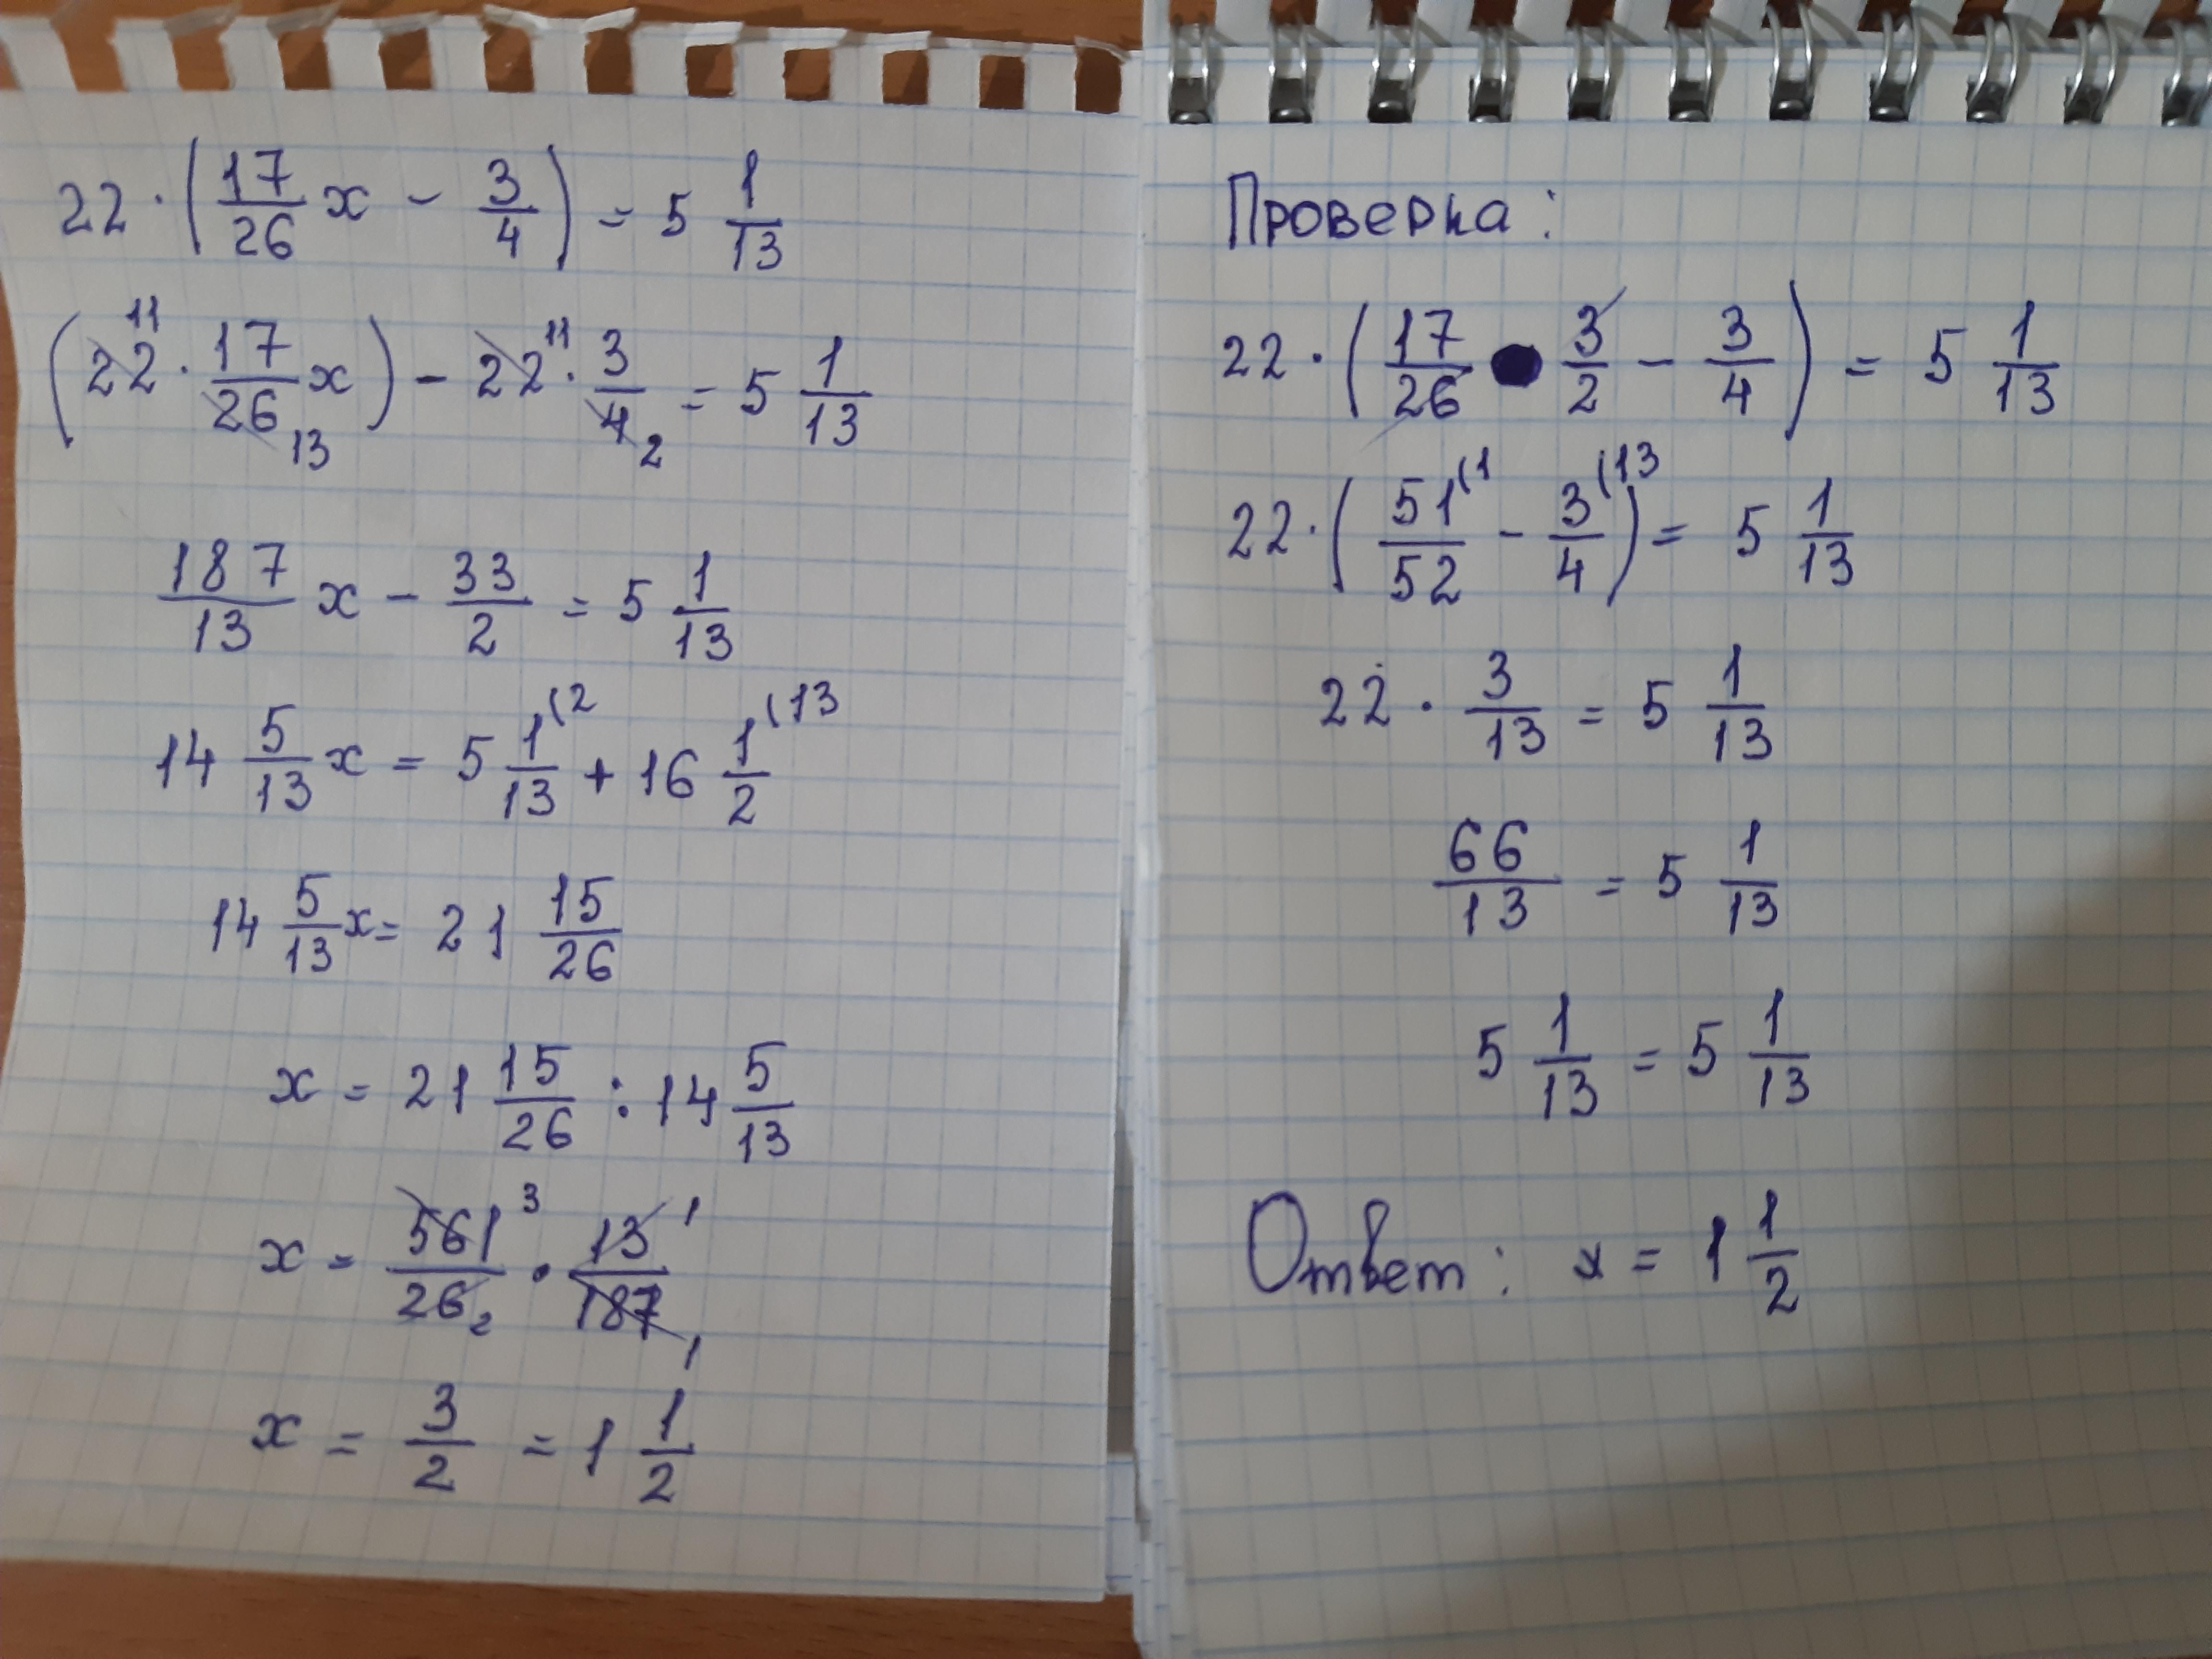 22 · (17/26 x - 3/4) = 5 1/13
(22 11 · 17/26 13 x) - 22 11 · 3/4 2 = 5 1/13
187/13 x - 33/2 = 5 1/13
14 5/13 x = 5 1/13 (2 + 16 1/2 (13
14 5/13 x = 21 15/26
x = 21 15/26 : 14 5/13
x = 561 3/26 2 · 13 1/187 1
x = 3/2 = 1 1/2
Проверка:
22 · (17/26 · 3/2 - 3/4) = 5 1/13
22 · (51/52 (1 - 3/4 (13) = 5 1/13
22 · 3/13 = 5 1/13
66/13 = 5 1/13
5 1/13 = 5 1/13
Ответ: x = 1 1/2